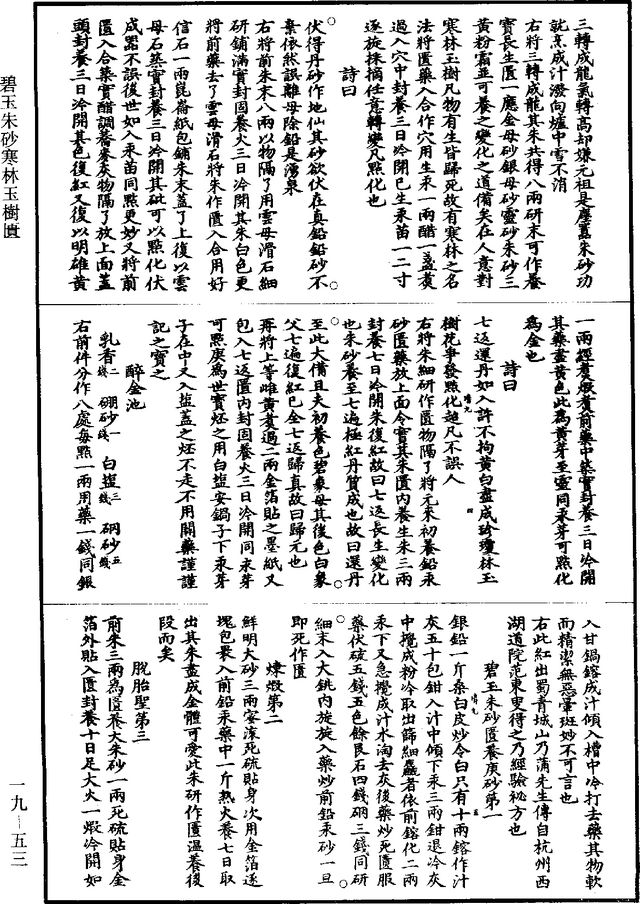 三轉成龍氣轉高却嫌元祖是塵囂朱砂功
就烹成汁潑向爐中雪不消
右將三轉成龍其朱共得八兩研末可作養
寶長生匱一應金母砂銀母砂靈砂朱砂三
黃粉霜並可養之變化之道備矣在人意對
寒林玉樹凡物有生皆歸死故有寒林之名
法將匱藥入合作穴用生汞一兩醋一盞煑
過入穴中封養三日冷開已生汞苗一二寸
逐旋採摘任意轉變凡點化也
詩曰
伏得丹砂作地仙其砂欲伏在真鉛鉛砂不
棄依然誤離母除鉛是湧泉
右將前朱末八兩以物隔了用雲母滑石細
研鋪滿實封固養火三日冷開其朱白色更
將前藥去了雲母滑石將朱作匱入合用好
信石一兩崑崙紙包鋪朱末蓋了上復以雲
母石築實封養三日冷開其砒可以點化伏
成器不誤後世如入汞苗同點更妙又將前
匱入合築實醋調蕎麥灰物隔了放上面蓋
頭封養三日冷開其色復紅又復以明雄黃
一兩經煑煅煑前藥中築實封養三日冷開
其藥盡黃色此為黃芽至靈同汞芽可點化
為金也
詩曰
七返還丹如入許不拘黃白盡成珍瓊林玉
樹花爭發點化超凡不誤人
右將朱細研作匱物隔了將元來初養鉛汞
砂匱藥放上面令實其朱匱內養生朱三兩
封養七日冷開朱復紅故曰七返長生變化
也朱砂養至七遍極紅丹質成也故曰還丹
至此大備且夫初養色碧象母其後色白象
父七遍復紅已全七返歸真故曰歸元也
再將上等雌黃煑過二兩金箔貼之墨紙又
包入七返匱內封固養火三日冷開同汞芽
可點庚為世寶坯之用白塩安鍋子下汞芽
子在中又入塩蓋之坯不走不用關藥謹謹
記之寶之
醉金池
乳香二錢 硼砂一錢 白塩三錢 硇砂五錢
右前件分作八處每點一兩用藥一錢同銀
入甘鍋鎔成汁傾入槽中冷打去藥其物軟
而精潔無惡暈斑妙不可言也
右此紅出蜀青城山乃蒲先生傳自杭州西
湖道院范東叟得之乃經驗祕方也
碧玉朱砂匱養庚砂第一
銀鉛一斤桑白皮炒令白只有十兩鎔作汁
灰五十包鉗入汁中傾下汞三兩鉗退冷灰
中攪成粉冷取出篩細麤者依前鎔化二兩
汞下又急攪成汁水淘去灰後藥炒死匱服
藥伏硫五錢五色餘艮石四錢硇三錢同研
細末入大銚內旋旋入藥炒前鉛汞砂一旦
即死作匱
煉煅第二
鮮明大砂三兩蜜滾死硫貼身次用金箔逐
塊包裹入前鉛汞藥中一斤熟火養七日取
出其朱盡成金體可愛此朱研作匱溫養後
段而矣
脫胎聖第三
前朱三兩為匱養大朱砂一兩死硫貼身金
箔外貼入匱封養十日足大火一煅冷開如
碧玉朱砂寒林玉樹匱
一九－五三